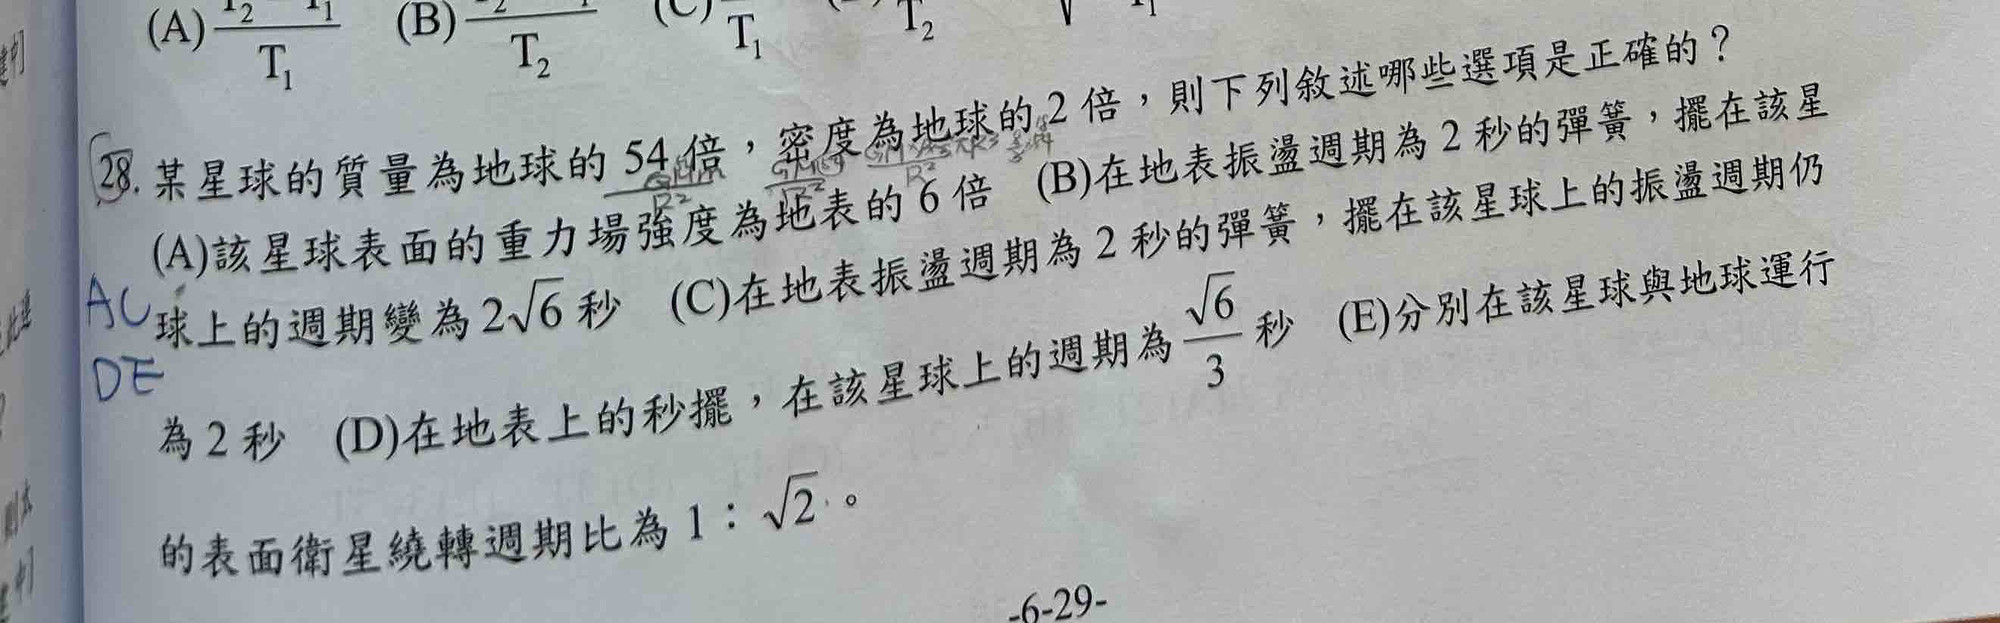 (A) T₁ (B) T₂ T₁ T₂
28. 某星球的質量為地球的 54 倍，密度為地球的 2 倍，則下列敘述哪些選項是正確的？
(A)該星球表面的重力場強度為地表的 6 倍 (B)在地表振盪週期為 2 秒的彈簧，擺在該星
球上的週期變為 2√6 秒 (C)在地表振盪週期為 2 秒的彈簧，擺在該星球上的振盪週期仍
為 2 秒 (D)在地表上的秒擺，在該星球上的週期為 √6/3 秒 (E)分別在該星球與地球運行
的表面衛星繞轉週期比為 1：√2。
AC
DE
-6-29-